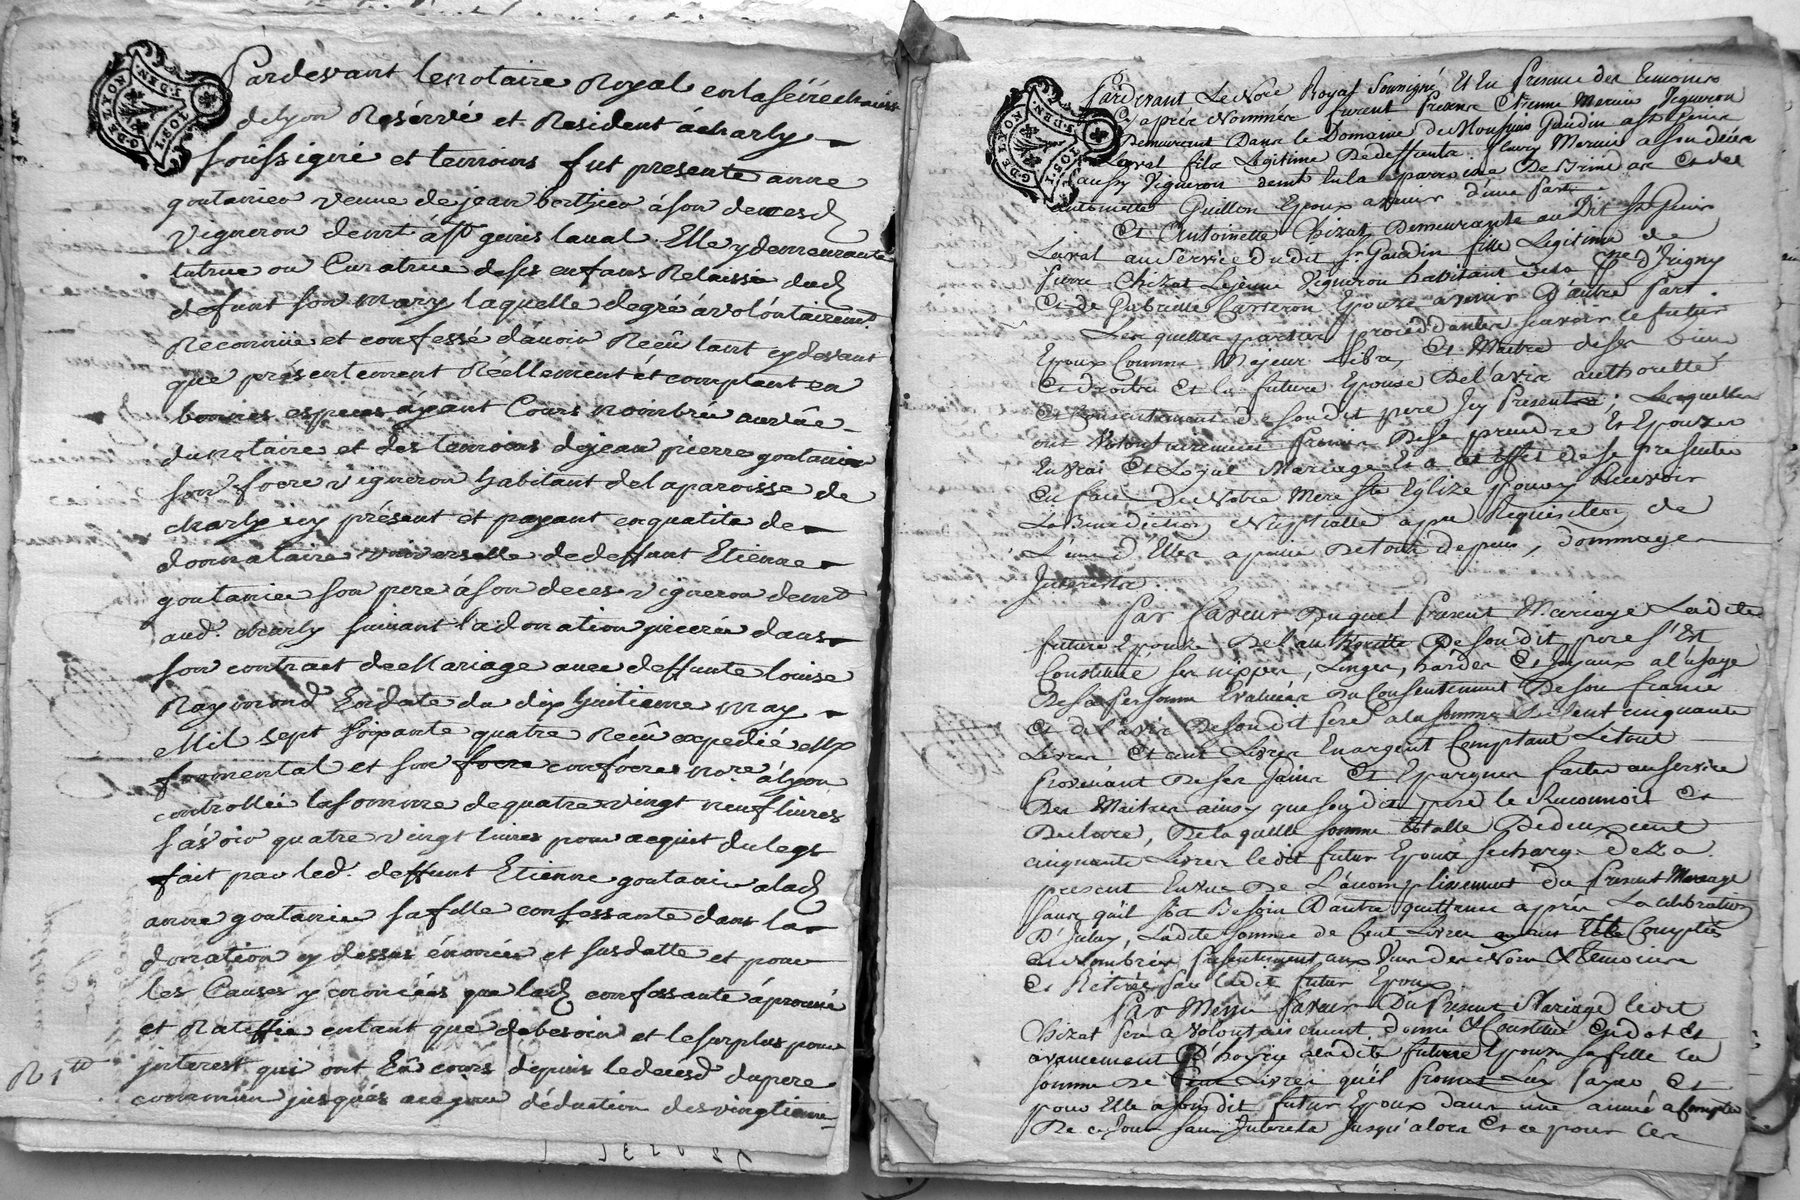 G. DE LYON
I. DEN.
10S. 1
Pardevant le notaire Royal en la sénéchaussé
de Lyon Réservé et Resident à charly
soussigné et temoins fut presente anne
goutanieu veuve de jean berthieu à son deces
Vigneron demt. a st genis laval Elle y demeurante
tutrice ou Curatrice de ses enfans Relaissés dud
defunt son mary laquelle de gré à volontairemt.
Reconnue et confessé d'avoir Reçû tant cy devant
que présentement Réellement et comptant en
bonnes especes ayant Cours nombrée au vûe
du notaire et des temoins de jean pierre goutanieu
son frere vigneron habitant de la paroisse de
charly icy présent et payant en qualité de
donnataire universelle de deffunt Etienne
goutanieu son pere à son deces vigneron demt
aud. charly suivant la donation inserée dans
son contract de Mariage avec deffunte louise
Raymond En date du dix huitieme may
Mil sept soixante quatre Reçû expedié Me
fromental et son frere confreres nore. à lyon
controllée la somme de quatre vingt neuf livres
sçavoir quatre vingt livres pour acquit du legs
fait par led. deffunt Etienne goutanieu a lad
anne goutanieu sa fille confessante dans la
donation cy dessus énoncée et susdatte et pour
les Causes y énoncées que lad confessante aprouvé
et Rateffie entant que de besoin et le surplus pour
interest qui ont Eû cours depuis le deces du pere
commun jusques à ce jour déduction des vingtieme
G. DE LYON
I. DEN.
10S. 1
Pardevant Le Nore Royal Soussigné Et En Presence des temoins
Cy après Nommés furent Presens Etienne Mercier Vigneron
Demeurant Dans le Domaine de Monsieur Gaudin a st genis
Laval fils Légitime De deffunts fleury Mercier a son déces
aussy Vigneron demt En la parroisse De Brindas Et de
Antoinette Guillon Epoux avenir d'une part
Et Antoinette Chizat Demeurante au Dit St Genis
Laval au Service du dit Sr Gaudin fille Légitime de
Pierre Chizat Lejeune Vigneron habitant de la psse d'Irigny
Et de Gabrielle Carteron Epouze avenir D'autre part
Lesquelles parties procédantes sçavoir le futur
Epoux Comme Majeur Libre, Et Maitre de ses biens
Et droits Et la future Epouse De l'avis authorité
Et Consentement de son dit pere Icy Présent; Lesquelles
ont Volontairement Promis De se prendre Et Epouzer
En vrai Et Loyal Mariage Et a cet Effet de se presenter
En face De Notre Mere Ste Eglize pour y Recevoir
La Bénédiction Nuptialle a pre Réquisition de
L'une d'Elles a peine De tous depens, dommages
Interests.
Par faveur Duquel Présent Mariage Ladite
future Epouze De l'authorité De son dit pere s'Est
Constituée ses nippes, Linges, hardes Et Joyaux a l'usage
De sa Personne Evalués Du Consentement De son fiancé
Et de l'avis De son dit Pere a la somme De Cent cinquante
Livres Et cent Livres En argent Comptant Le tout
Provenant De ses Gains Et Epargnes faites au service
Des Maitres ainsy que son dit pere le Reconnoit Et
Déclare, De laquelle somme totalle De deux cent
cinquante Livres ledit futur Epoux se charge deza
present En vue De L'accomplissement du Present Mariage
sans qu'il soit Besoin D'autre quittance après La célébration
D'Iceluy, Ladite somme de Cent Livres ayant Etté Comptée
Et Nombrée Présentement aux Vues des Nore & Temoins
Et Retirée par Ledit futur Epoux
Par Même faveur Du Présent Mariage ledit
Chizat pere a Volontairement donné & Constitué En dot Et
avancement d'hoyrie a ladite future Epouze sa fille la
somme de Cent Livres qu'il Promet Luy Payer Et
pour Elle a son dit futur Epoux dans une année a Compter
De ce Jour sans Interets Jusqu'alors Et ce pour Les